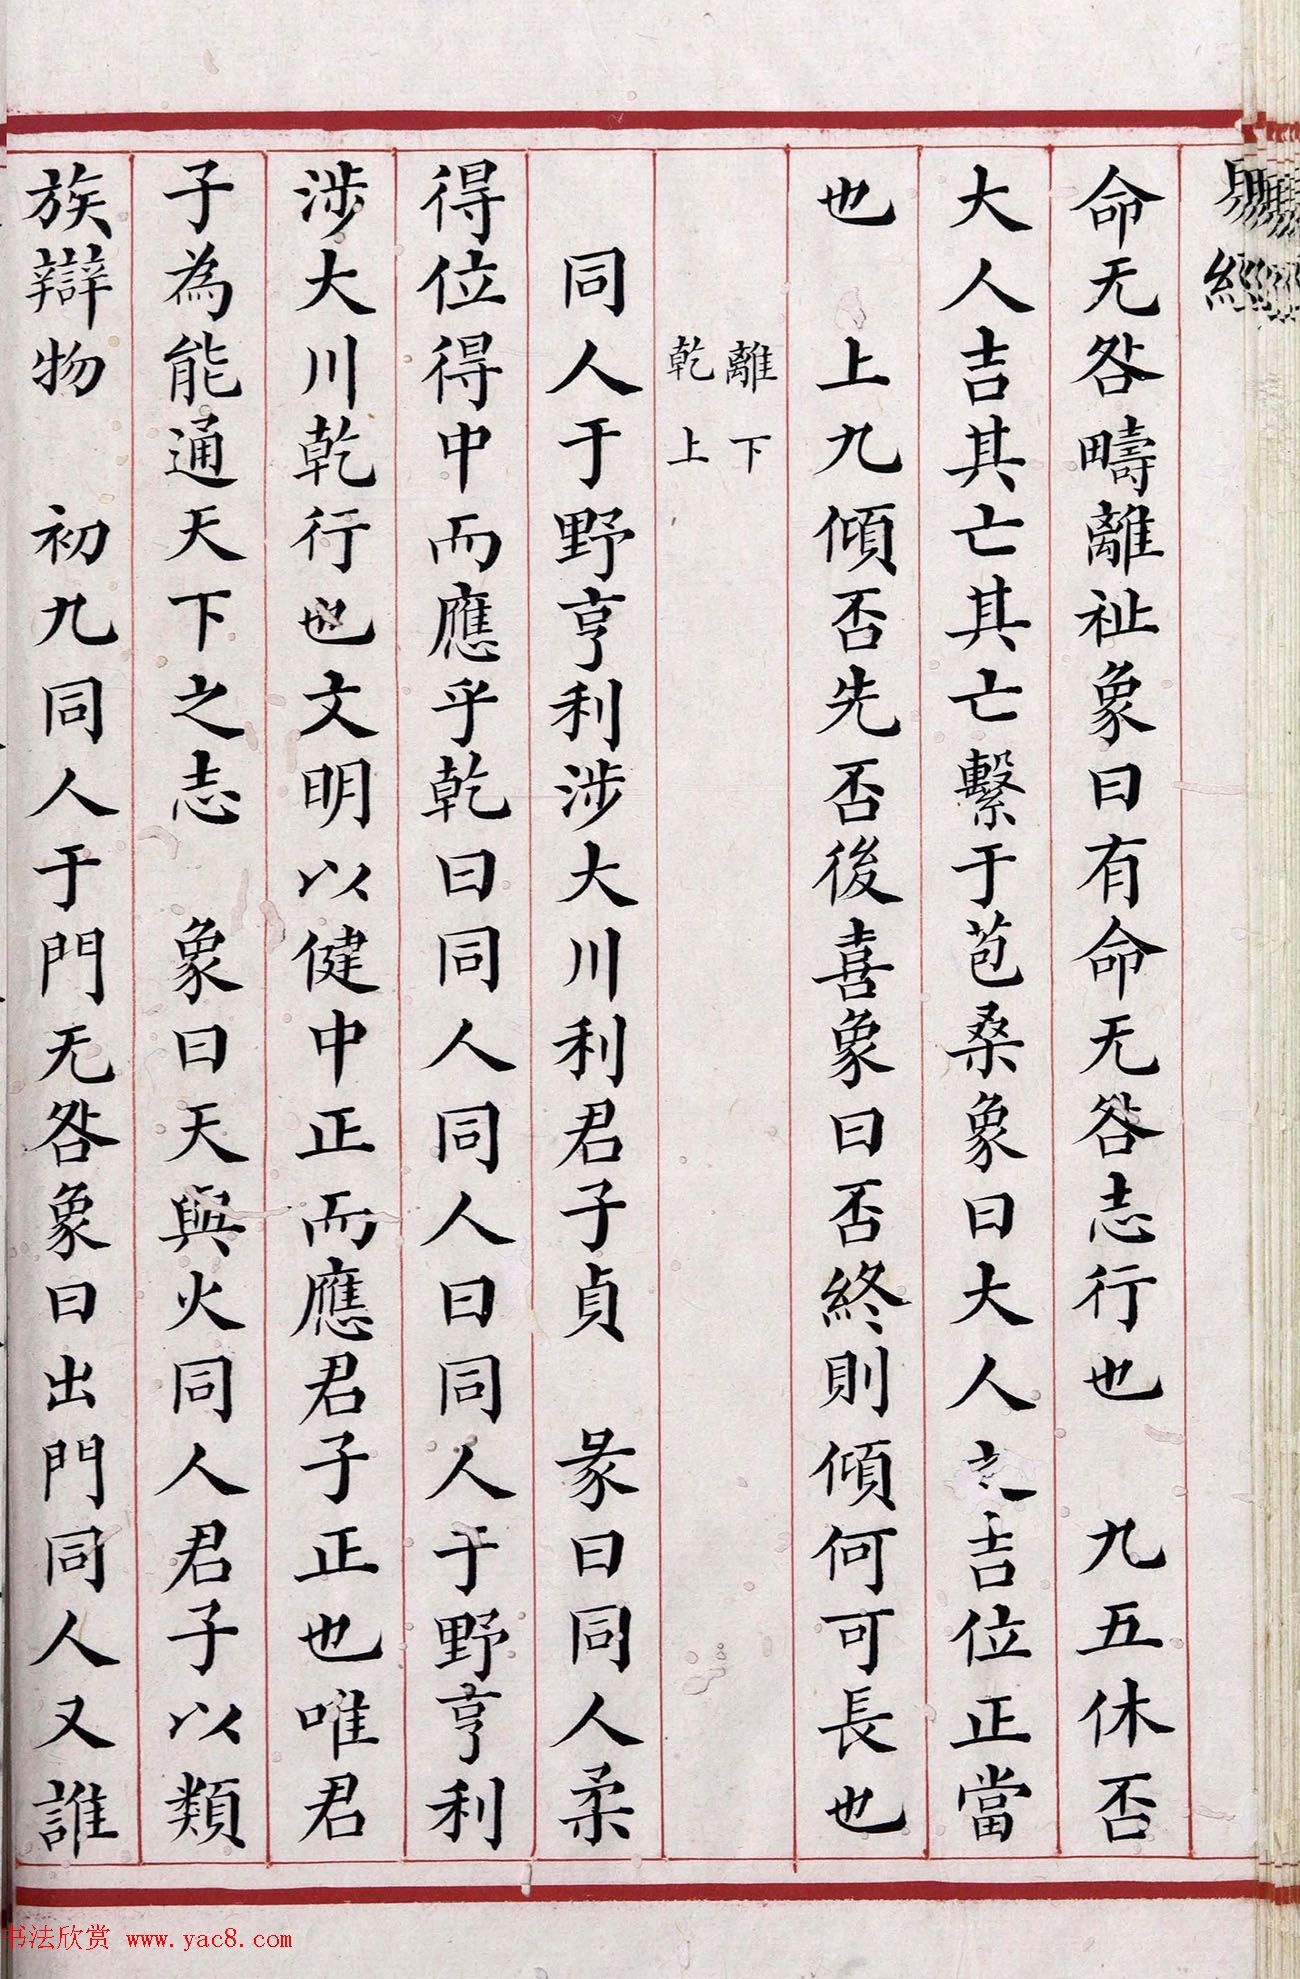 經
命无咎疇離祉象曰有命无咎志行也　九五休否
大人吉其亡其亡繫于苞桑象曰大人之吉位正當
也　上九傾否先否後喜象曰否終則傾何可長也
離下
乾上
同人于野亨利涉大川利君子貞　彖曰同人柔
得位得中而應乎乾曰同人同人曰同人于野亨利
涉大川乾行也文明以健中正而應君子正也唯君
子為能通天下之志　象曰天與火同人君子以類
族辯物　初九同人于門无咎象曰出門同人又誰
书法欣赏 www.yac8.com